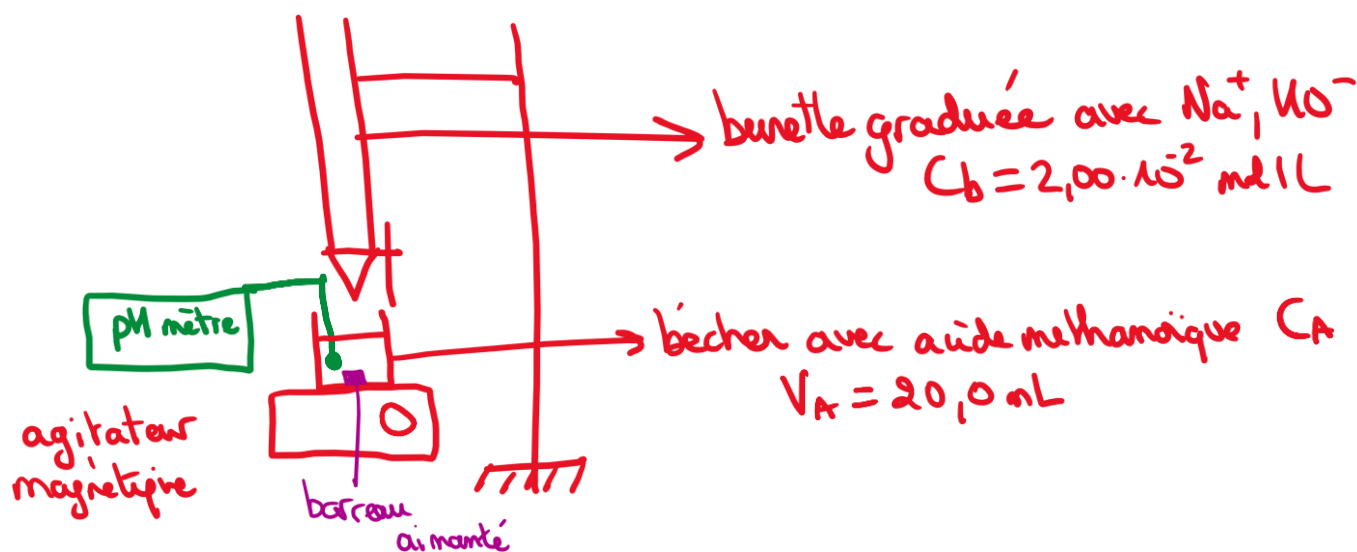 burette graduée avec Na⁺, HO⁻
Cb = 2,00.10⁻² mol/L
pH mètre
bécher avec acide méthanoïque CA
VA = 20,0 mL
agitateur
magnétique
barreau
aimanté